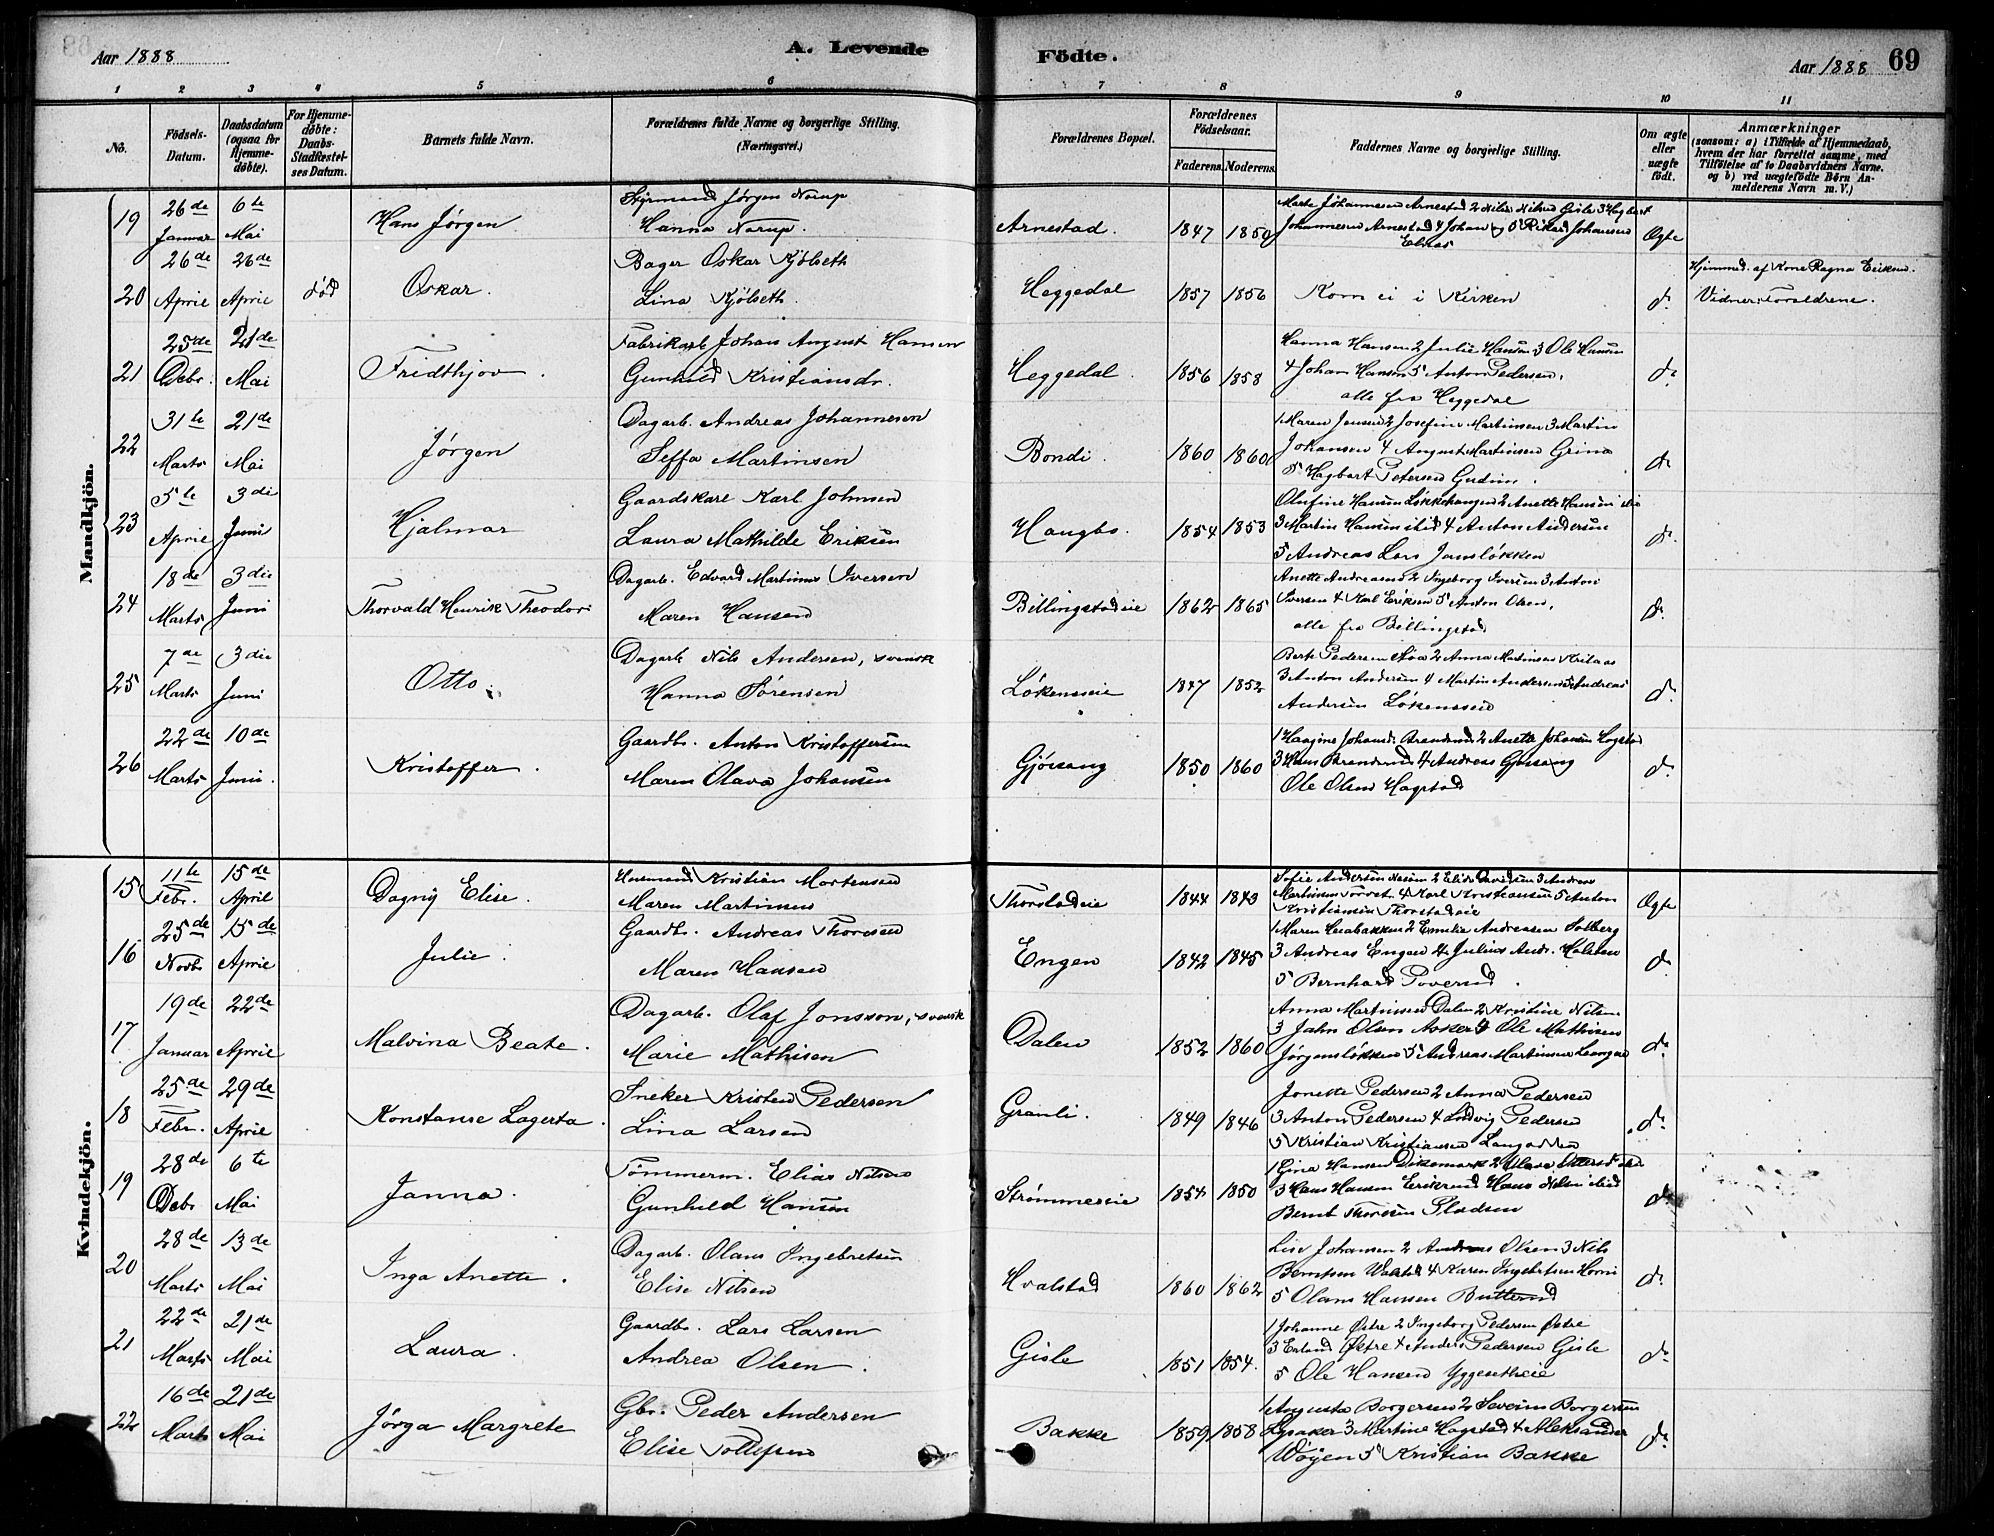 Aar 1888
A. Levende
Födte.
Aar 1888
69
1 2 3 4 5 6 7 8 9 10 11
No.
Födsels-Datum.
Daabsdatum (ogsaa for Hjemme-døbte).
For Hjemme-døbte: Daabs-Stadfæstel-ses Datum.
Barnets fulde Navn.
Forældrenes fulde Navne og borgerlige Stilling.
(Næringsvei.)
Forældrenes Bopæl.
Forældrenes Födselsaar.
Faderens. Moderens.
Faddernes Navne og borgerlige Stilling.
Om ægte eller uægte født.
Anmærkninger
(saasom: a) i Tilfælde af Hjemmedaab, hvem der har forrettet samme, med Tilföielse af to Daabsvidners Navne. og b) ved uægtefödte Börn An-melderens Navn m. V.)
Mandkjön.
19 26de Januar 6te Mai Hans Jørgen Styrmand Jørgen Norup
Hanna Norup. Arnestad. 1847 1850 Johannesen Arnestad 4 Johan og 5 Rikard Johansen Ægte
20 26de April 26de April død Oskar. Bager Oskar Kjølseth
Lina Kjølseth. Heggedal 1857 1856 Kom ei i Kirken do Hjemmed. af Kone Ragna Eriksen.
Vidner: Forældrene.
21 25de Decbr. 21de Mai Fridthjov. Fabrikarb. Johan August Hansen
Gunhild Kristiansdr. Heggedal. 1856 1858 Hanna Hansen 2 Julie Hansen 3 Ole Hansen
4 Johan Hansen 5 Anton Pedersen,
alle fra Heggedal do
22 31te Marts 21de Mai Jørgen Dagarb. Andreas Johannesen
Seffa Martinsen Bondi. 1860 1860 1 Maren Jensen 2 Josefine Martinsen 3 Martin
Johansen 4 August Martinsen Grina
5 Hagbart Petersen Gudim. do
23 5te April 3die Juni Hjalmar Gaardskarl Karl Johnsen
Laura Mathilde Eriksen Haugbo. 1854 1853 Olufine Hansen Løkkehaugen 2 Anette Hansen
3 Martin Hansen ibid 4 Anton Andersen
5 Andreas Lars Jansløkken do
24 18de Marts 3die Juni Thorvald Henrik Theodor Dagarb. Edvard Martinius Iversen
Maren Hansen Billingstadeie 1862 1865 Anette Andreasen 2 Ingeborg Iversen 3 Anton
Iversen 4 Karl Eriksen 5 Anton Olsen,
alle fra Billingstad do
25 7de Marts 3die Juni Otto. Dagarb. Nils Andersen, svensk
Hanna Sørensen Løkenseie 1847 1852 Anna Martinsen
3 Anton Andersen 4 Martin Andersen 5 Andreas
Andersen Løkenseie do
26 22de Marts 10de Juni. Kristoffer. Gaardbr. Anton Kristoffersen
Maren Olava Johansen Gjøssang 1850 1860 2 Anette Johansen Hogstad
4 Andreas Gjøssang
Ole Olsen Hogstad do
Kvindekjön.
15 11te Febr. 15de April Dagny Elise. Husmand Kristian Mortensen
Maren Martinsen Thorstadeie 1844 1843 Sofie Andersen
4 Karl Kristiansen 5 Anton
Kristiansen Thorstadeie Ægte
16 25de Novbr. 15de April Julie. Gaardbr. Andreas Thoresen
Maren Hansen Engen 1842 1845 2 Emelie Andreassen Solberg
3 Andreas Engen 4 Julius Andr. Holstein
5 Bernhard Poverud. do
17 19de Januar 22de April Malvina Beate. Dagarb. Olaf Jonsson, svensk
Marie Mathisen Dalen 1852 1860 Anna Martinsen Dalen 2 Kristine Nilsen
3 John Olsen Asker 4 Ole Mathisen
Jørgensløkken 5 Andreas Martinsen do
18 25de Febr. 29de April Konstanse Lagerta. Sneker Kristen Pedersen
Lina Larsen Granli. 1849 1846 Jonette Pedersen 2 Anna Pedersen
3 Anton Pedersen 4 Ludvig Pedersen
5 Kristian Kristiansen do
19 28de Decbr 6te Mai Janna. Tømmerm. Elias Nilsen
Gunhild Hansen Strømmeseie 1854 1850 1 Gina Hansen Dikemark 2 Olava
3 Hans Hansen Hans Nilsen ibid
Bernt Thoresen Pladsen do
20 28de Marts 13de Mai Inga Anette. Dagarb. Olaus Ingebretsen
Elise Nilsen Hvalstad 1860 1862 Lise Johansen 2 Andreas Olsen 3 Nils
Berntsen 4 Karen Ingebretsen
5 Olaus Hansen Butterud do
21 22de Marts 21de Mai Laura. Gaardbr. Lars Larsen
Andrea Olsen. Gisle 1851 1854. 1 Johanne Østre 2 Ingeborg Pedersen Østre
3 Erland Østre 4 Anders Pedersen Gisle
5 Ole Hansen Yggesetheie do
22 16de Marts 21de Mai Jørga Margrete Gbr. Peder Andersen
Elise Tollefsen Bakke 1859 1858 1 Augusta Borgersen 2 Severin Borgersen
Lysaker 3 Martine Hogstad 4 Aleksander
Wøyen 5 Kristian Bakke do